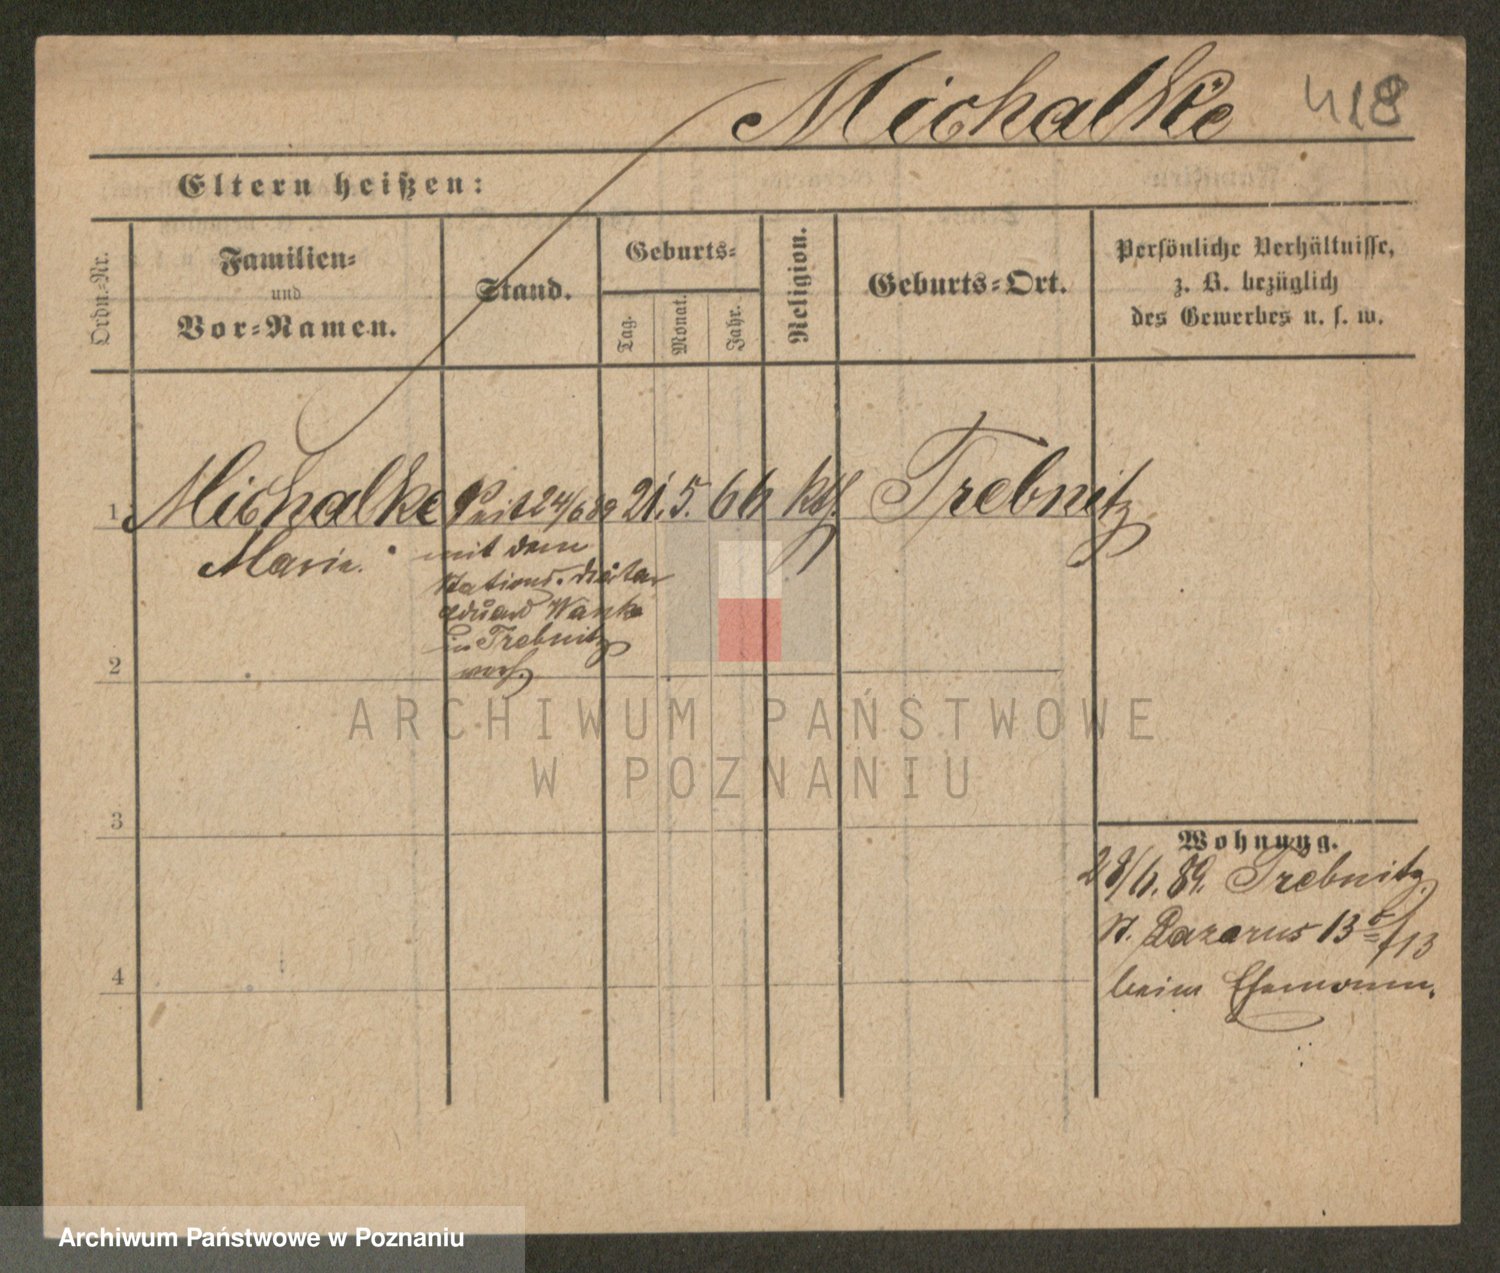 Michalke 418
Eltern heißen:
Ordn.-Nr.
Familien-
und
Vor-Namen.
Stand.
Geburts-
Tag.
Monat.
Jahr.
Religion.
Geburts-Ort.
Persönliche Verhältnisse,
z. B. bezüglich
des Gewerbes u. s. w.
1 Michalke seit 24/6 89 21. 5. 66 kth. Trebnitz
Marie.
mit dem
Stations-Diätar
Eduard Wanke
in Trebnitz
verh.
2
3
4
Wohnung.
28/6. 89. Trebnitz
St. Lazarus 13
beim Ehemann.
ARCHIWUM PAŃSTWOWE
W POZNANIU
Archiwum Państwowe w Poznaniu